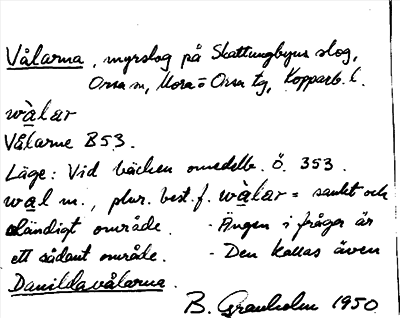 Vålarna, myrslog på Skattungbyns slog,
Orsa sn, Mora = Orsa tg, Kopparb. l.
wàlar
Vålarne B53.
Läge: Vid bäcken omedelb. Ö. 353.
wal m., plur. best. f. wàlar = sankt och
eländigt område. - Ängen i fråga är
ett sådant område. - Den kallas även
Danildavålarna.
B. Granholm 1950